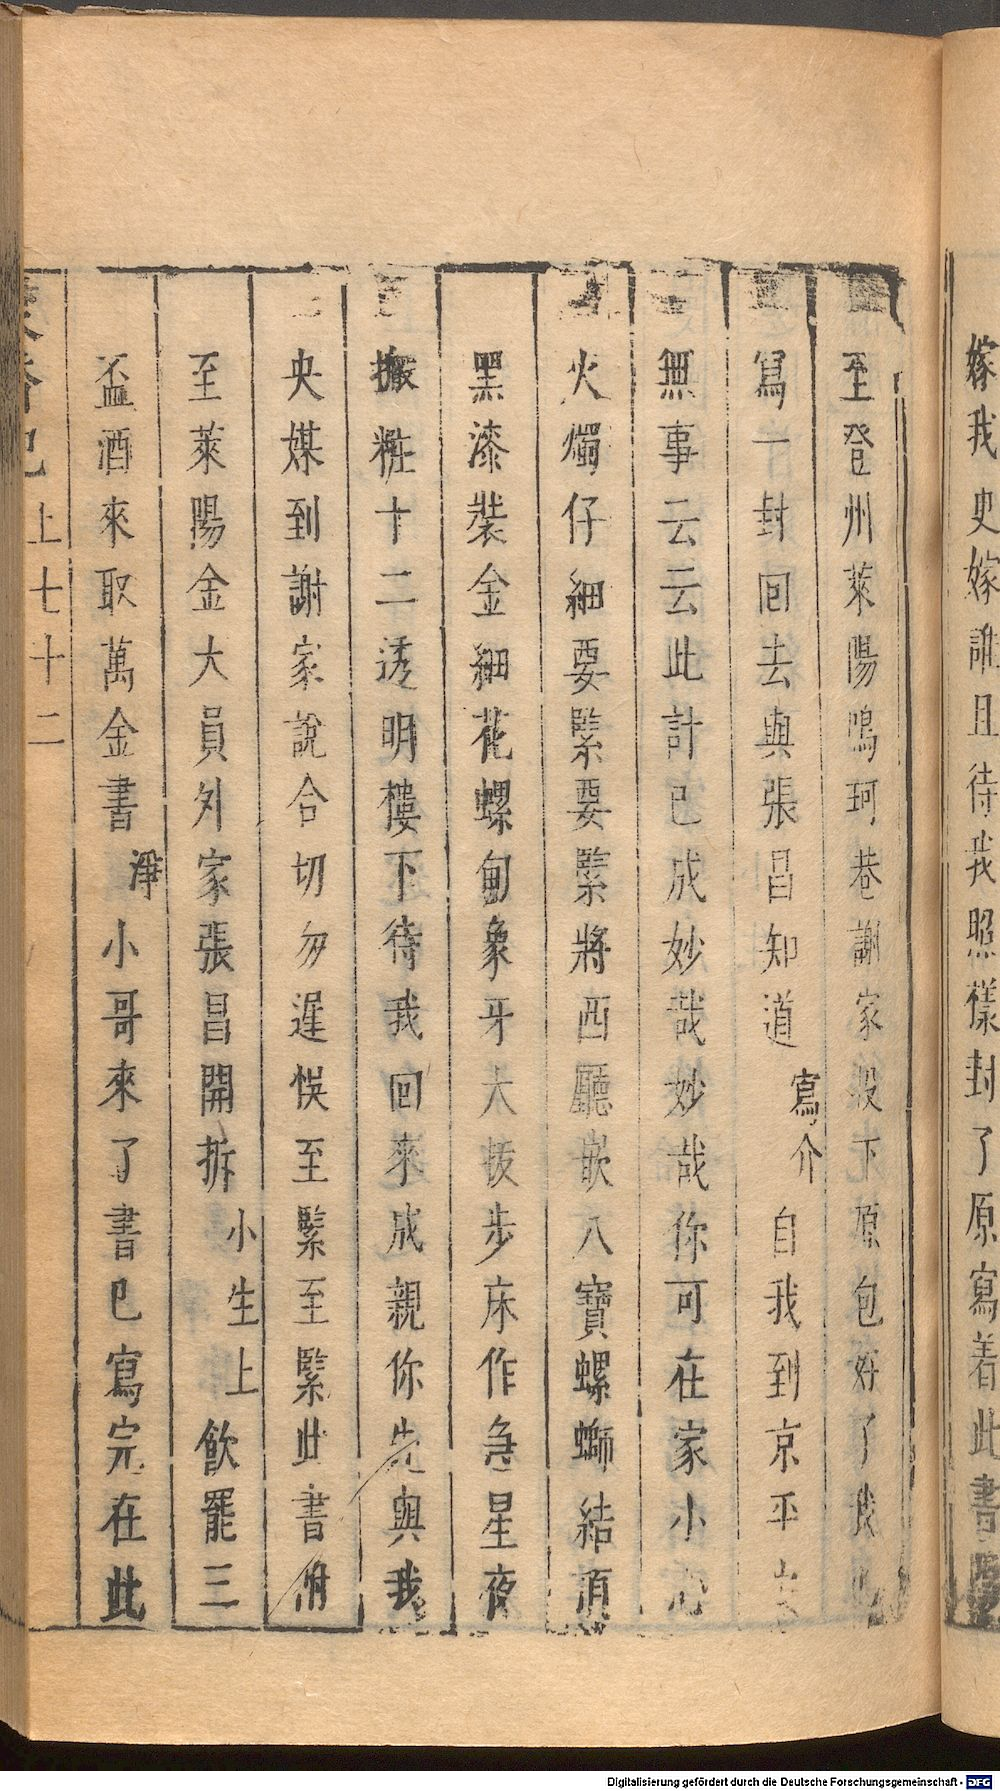 嫁我史嫁誰且待我照樣封了原寫着此書
至登州萊陽鳴珂巷謝家投下原包好了我
寫一封回去與張昌知道 寫介 自我到京平安
無事云云此計已成妙哉妙哉你可在家小心
火燭仔細要緊要緊將西廳嵌八寶螺螄結頂
黑漆裝金細花螺甸象牙大拔步床作急星夜
搬粧十二透明樓下待我回來成親你先與我
央媒到謝家說合切勿遲悞至緊至緊此書附
至萊陽金大員外家張昌開拆 小生上 飲罷三
盃酒來取萬金書 淨 小哥來了書已寫完在此
香記
上七十二
Digitalisierung gefördert durch die Deutsche Forschungsgemeinschaft - DFG